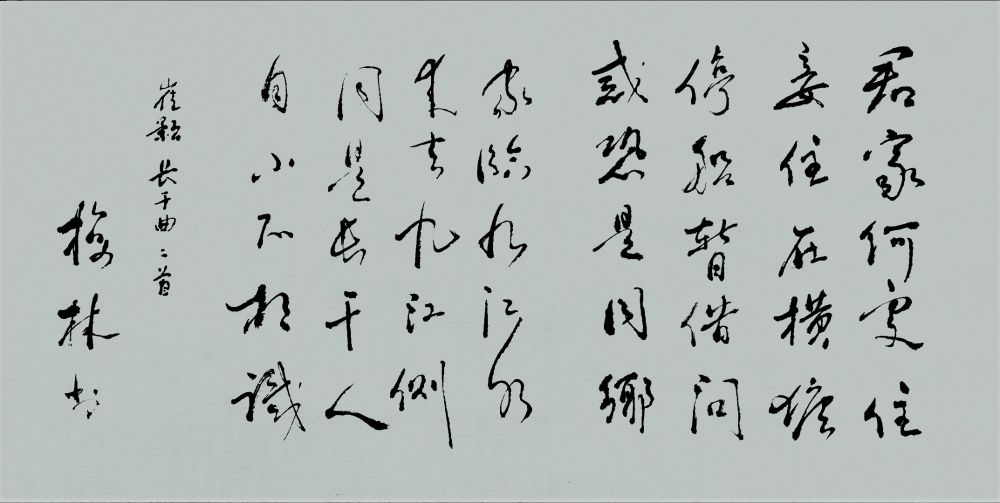 君家何處住
妾住在橫塘
停船暫借問
或恐是同鄉
家臨九江水
來去九江側
同是長干人
自小不相識
崔顥長干曲二首
林書